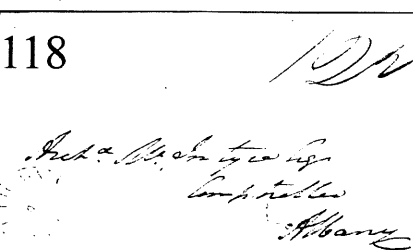 118
Archd McIntyre Esqr
Comptroller
Albany